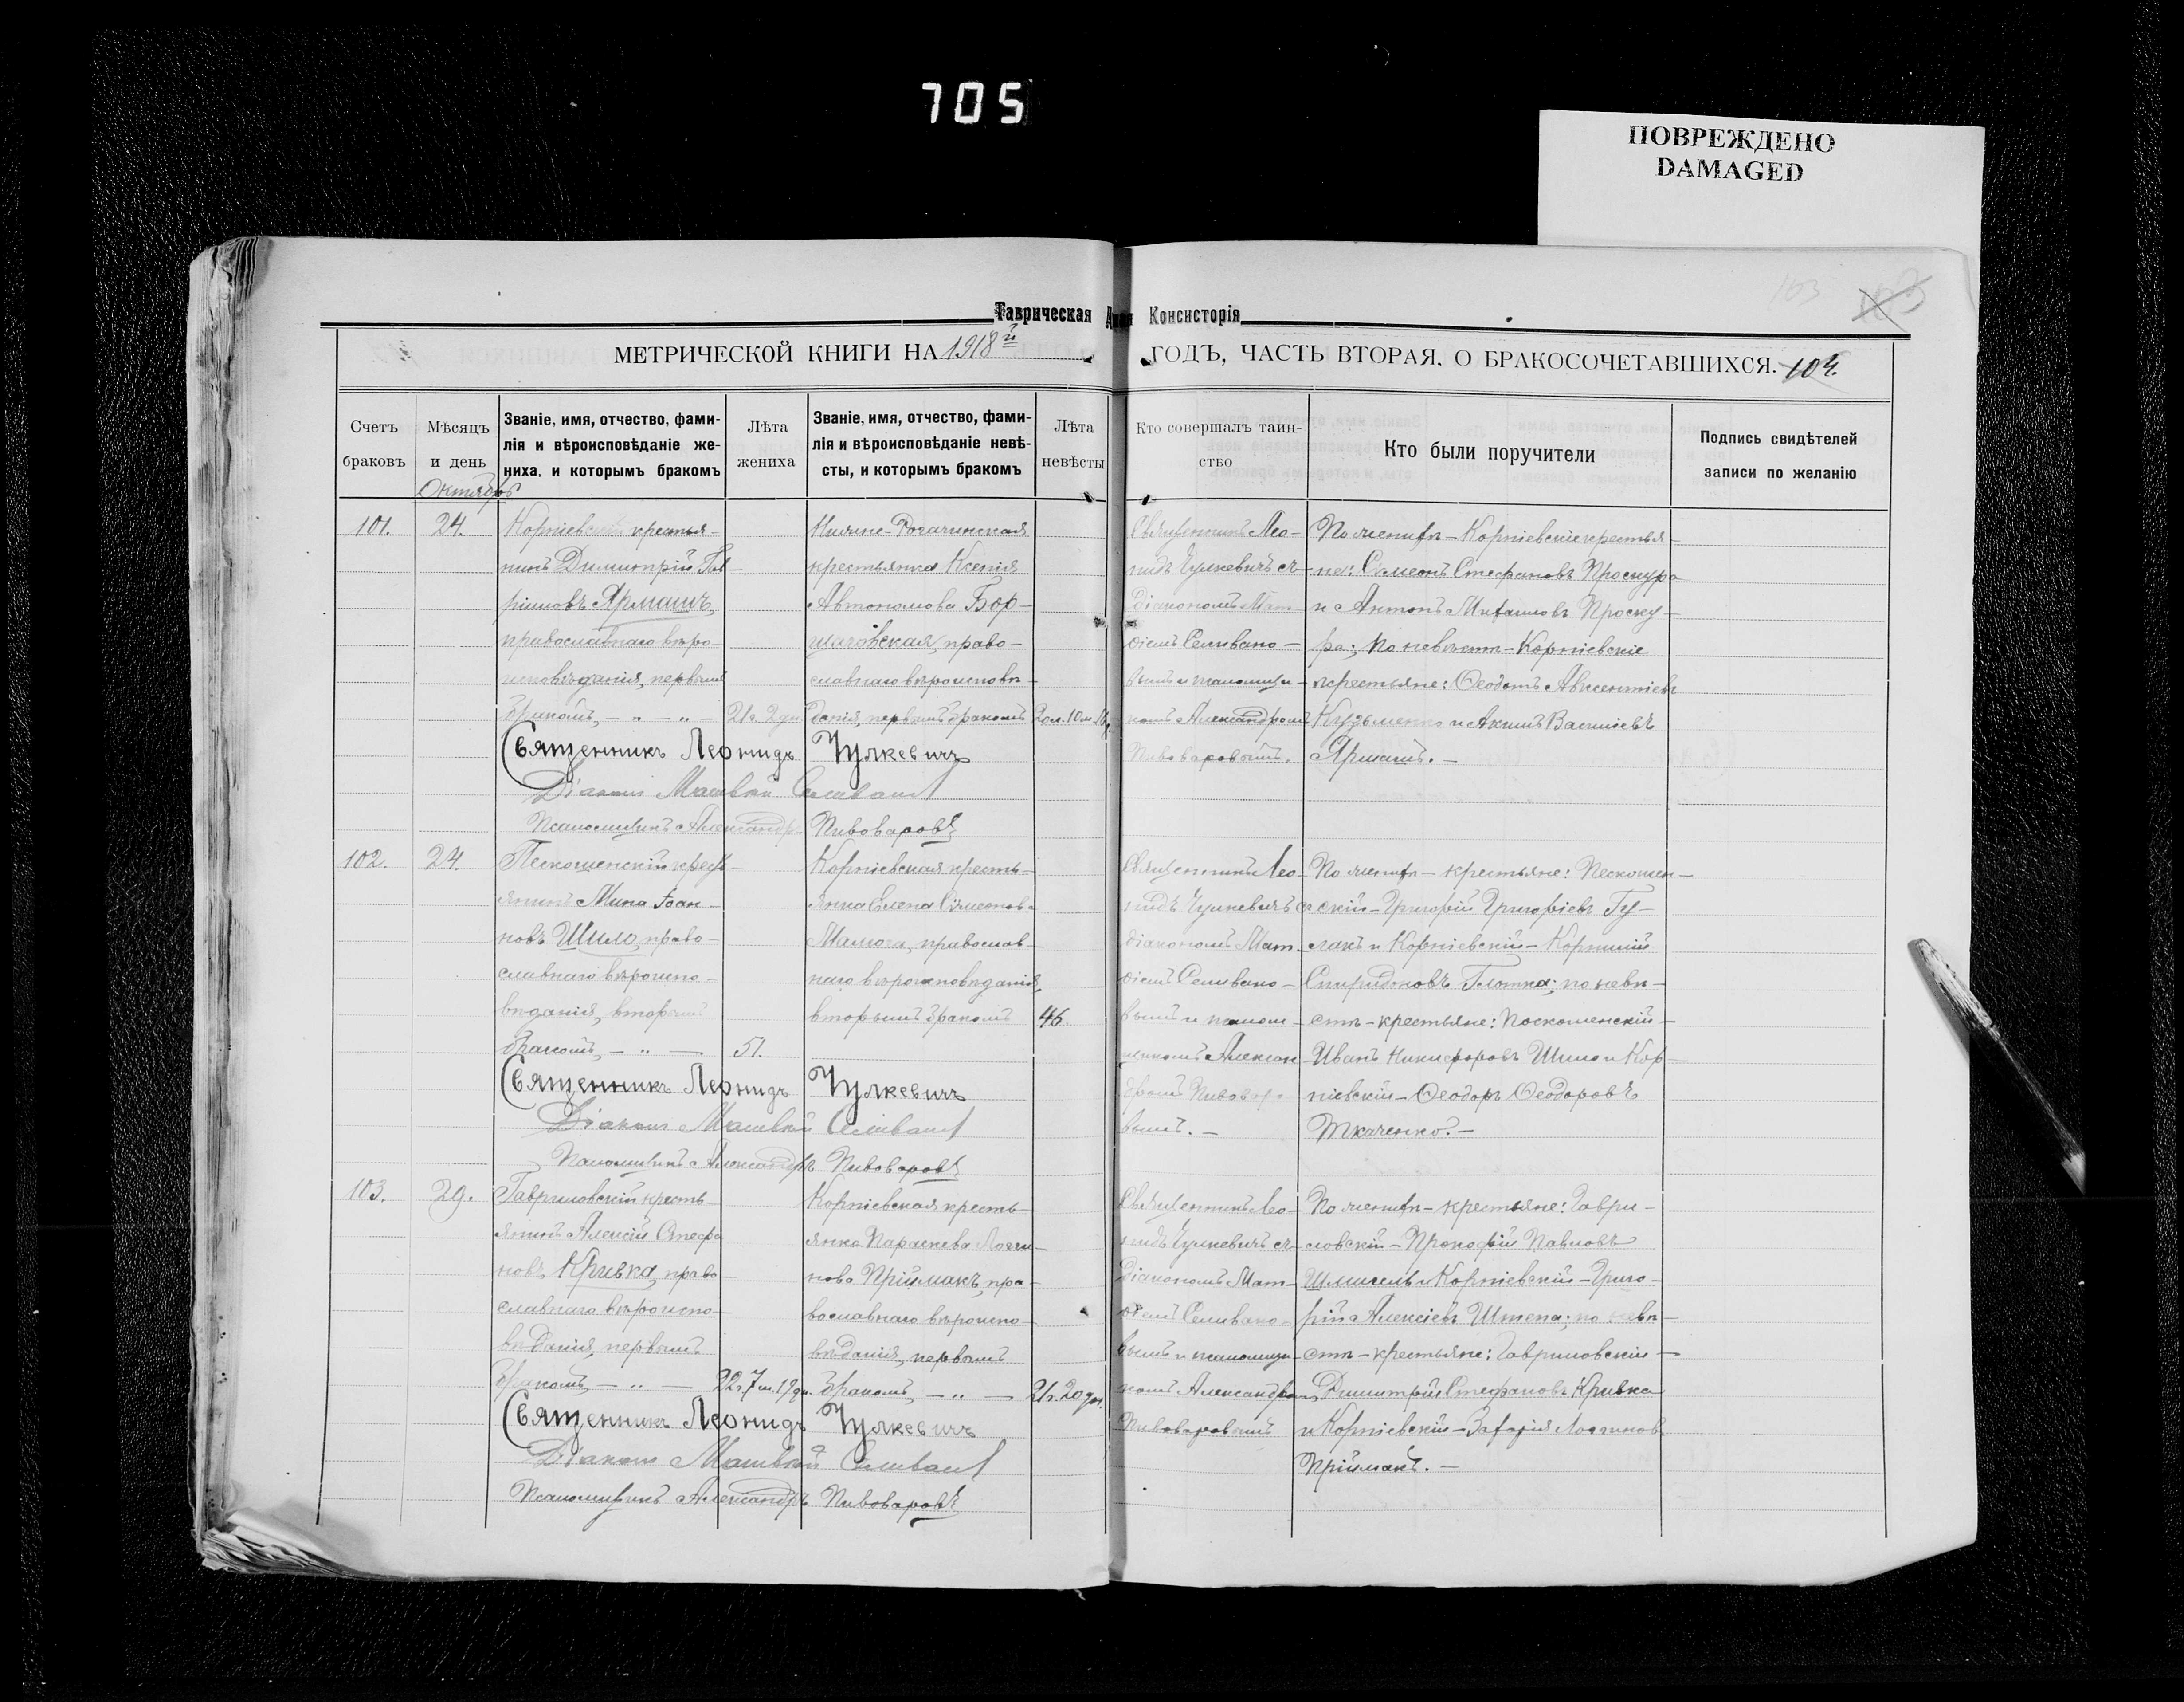 705
ПОВРЕЖДЕНО
DAMAGED
103
Таврическая Консисторія
МЕТРИЧЕСКОЙ КНИГИ НА 1918й ГОДЪ, ЧАСТЬ ВТОРАЯ, О БРАКОСОЧЕТАВШИХСЯ. 104.
Счетъ браковъ
Мѣсяцъ и день
Званіе, имя, отчество, фами-
лія и вѣроисповѣданіе же-
ниха, и которымъ бракомъ
Лѣта жениха
Званіе, имя, отчество, фами-
лія и вѣроисповѣданіе невѣ-
сты, и которымъ бракомъ
Лѣта невѣсты
Кто совершалъ таин-
ство
Кто были поручители
Подпись свидѣтелей
записи по желанію
Октябрь
101.
24.
Корніевскій крестья-
нинъ Димитрій
Ярмашъ,
православнаго вѣро-
исповѣданія, первымъ
бракомъ, — „ — „ —
21г. 2дн.
Нижне-Рогачинская
крестьянка Ксенія
Автономова Бор-
щаговская, право-
славнаго вѣроисповѣ-
данія, первымъ бракомъ
20л. 10м.
Священникъ Лео-
нидъ Чулкевичъ съ
діакономъ Мат-
ѳіемъ Селивано-
вымъ и псаломщи-
комъ Александромъ
Пивоваровымъ.
По женихѣ — Корніевскіе крестья-
не: Симеонъ Стефановъ Проскура
и Антонъ Михаиловъ Проску-
ра; по невѣстѣ — Корніевскіе
крестьяне: Ѳеодотъ Авксентіевъ
Кузьменко и Акимъ Василіевъ
Ярмашъ. —
Священникъ Леонидъ Чулкевичъ
Діаконъ Матвѣй Селиванов
Псаломщикъ Александръ Пивоваровъ
102.
24.
Пескошенскій кресть-
янинъ Мина Іоан-
новъ Шило, право-
славнаго вѣроиспо-
вѣданія, вторымъ
бракомъ, — „ —
51.
Корніевская кресть-
янка Елена Симеонова
Мамота, православ-
наго вѣроисповѣданія,
вторымъ бракомъ
46.
Священникъ Лео-
нидъ Чулкевичъ съ
діакономъ Мат-
ѳіемъ Селивано-
вымъ и псалом-
щикомъ Алексан-
дромъ Пивоваро-
вымъ. —
По женихѣ — крестьяне: Пескошен-
скій — Григорій Григоріевъ Гу-
лакъ и Корніевскій — Корнилій
Спиридоновъ Глотка; по невѣ-
стѣ — крестьяне: Поскошенскій —
Иванъ Никифоровъ Шило и Кор-
ніевскій — Ѳеодоръ Ѳеодоровъ
Ткаченко. —
Священникъ Леонидъ Чулкевичъ
Діаконъ Матвѣй Селиванов
Псаломщикъ Александръ Пивоваровъ
103.
29.
Гавриловскій кресть-
янинъ Алексій Стефа-
новъ Кривка, право-
славнаго вѣроиспо-
вѣданія, первымъ
бракомъ, — „ —
22г. 7м. 19дн.
Корніевская кресть-
янка Параскева Логги-
нова Пріймакъ, пра-
вославнаго вѣроиспо-
вѣданія, первымъ
бракомъ, — „ —
21г. 20дн.
Священникъ Лео-
нидъ Чулкевичъ съ
діакономъ Мат-
ѳіемъ Селивано-
вымъ и псаломщи-
комъ Александромъ
Пивоваровымъ
По женихѣ — крестьяне: Гаври-
ловскій — Прокофій Павловъ
Шмигель и Корніевскій — Григо-
рій Алексіевъ Штепа; по невѣ-
стѣ — крестьяне: Гавриловскій —
Димитрій Стефановъ Кривка
и Корніевскій — Захарія Логгиновъ
Пріймакъ. —
Священникъ Леонидъ Чулкевичъ
Діаконъ Матвѣй Селиванов
Псаломщикъ Александръ Пивоваровъ